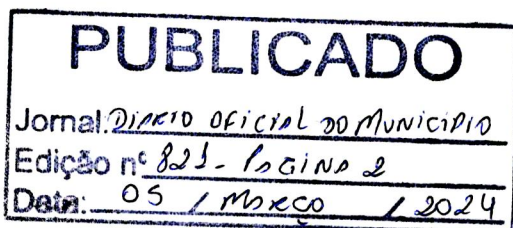 PUBLICADO
Jornal: DIARIO OFICIAL DO MUNICIPIO
Edição nº 821 - PAGINA 2
Data: 05 / MARÇO / 2024